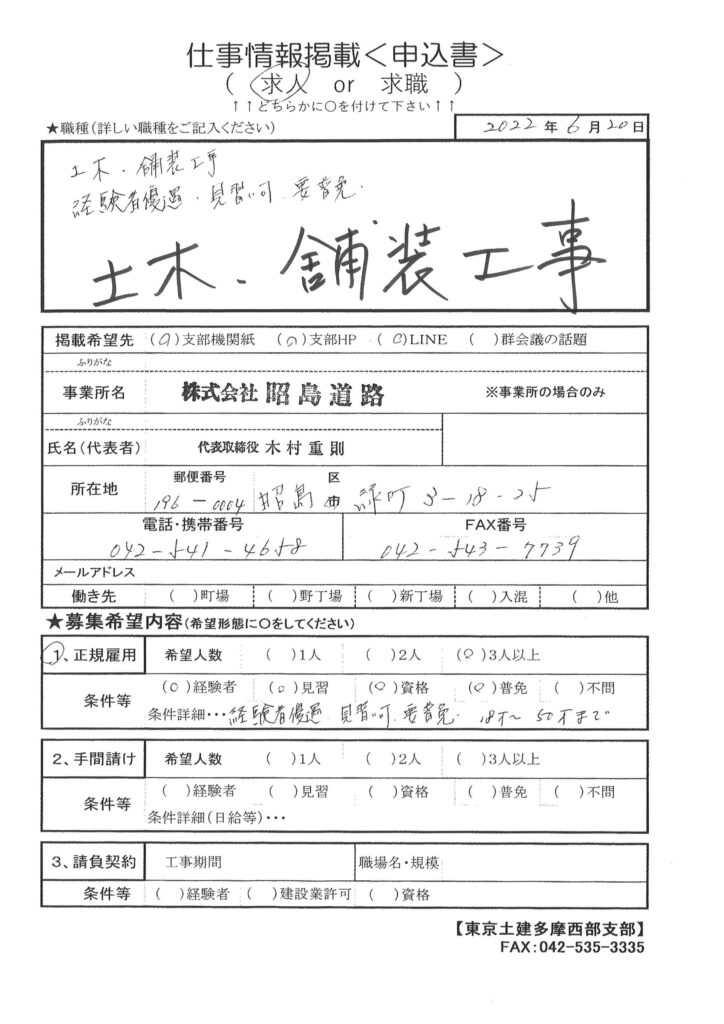 仕事情報掲載＜申込書＞
( 求人 or 求職 )
↑↑どちらかに〇を付けて下さい↑↑
★職種（詳しい職種をご記入ください）
2022 年 6 月 20 日
土木、舗装工事
経験者優遇、見習い可、要普免.
土木、舗装工事
掲載希望先 (○)支部機関紙 (○)支部HP (○)LINE ( )群会議の話題
ふりがな
事業所名 株式会社 昭島道路 ※事業所の場合のみ
ふりがな
氏名（代表者） 代表取締役 木村重則
郵便番号 区
所在地 196-0004 昭島 市 緑町 3-18-25
電話・携帯番号 FAX番号
042-541-4658 042-543-7739
メールアドレス
働き先 ( )町場 ( )野丁場 ( )新丁場 ( )入混 ( )他
★募集希望内容（希望形態に〇をしてください）
1、正規雇用 希望人数 ( )1人 ( )2人 (○)3人以上
(○)経験者 (○)見習 (○)資格 (○)普免 ( )不問
条件等
条件詳細・・・経験者優遇、見習い可、要普免. 18才～50才まで
2、手間請け 希望人数 ( )1人 ( )2人 ( )3人以上
( )経験者 ( )見習 ( )資格 ( )普免 ( )不問
条件等
条件詳細（日給等）・・・
3、請負契約 工事期間 職場名・規模
条件等 ( )経験者 ( )建設業許可 ( )資格
【東京土建多摩西部支部】
FAX:042-535-3335